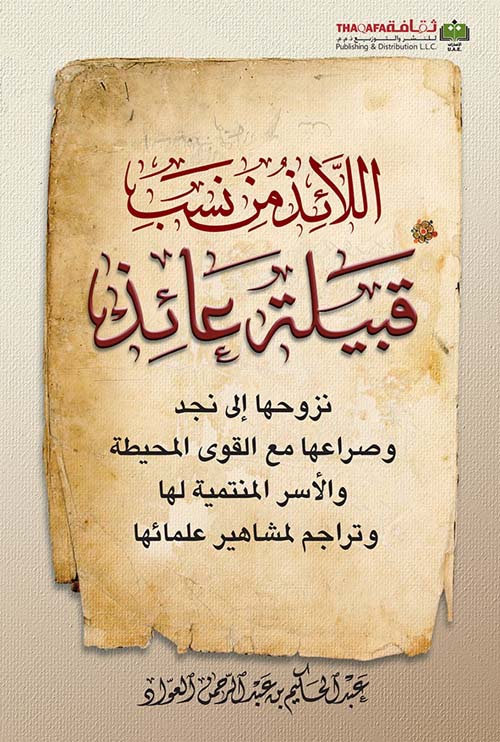 THAQAFA ثقافة
للنشر والتوزيع ذ.م.م.
Publishing & Distribution L.L.C.
الإمارات
U.A.E.
اللَّائِذُ مِن نَسَبِ
قَبيلة عَائِذ
نزوحها إلى نجد
وصراعها مع القوى المحيطة
والأسر المنتمية لها
وتراجم لمشاهير علمائها
عبد الحكيم بن عبد الرحمن العواد